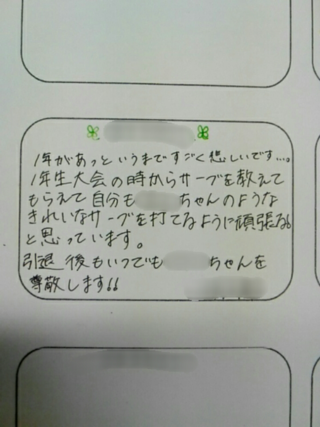 1年があっというまですごく悲しいです…。
1年生大会の時からサーブを教えて
もらえて自分も ちゃんのような
きれいなサーブを打てるように頑張る
と思っています。
引退後もいつでも ちゃんを
尊敬します